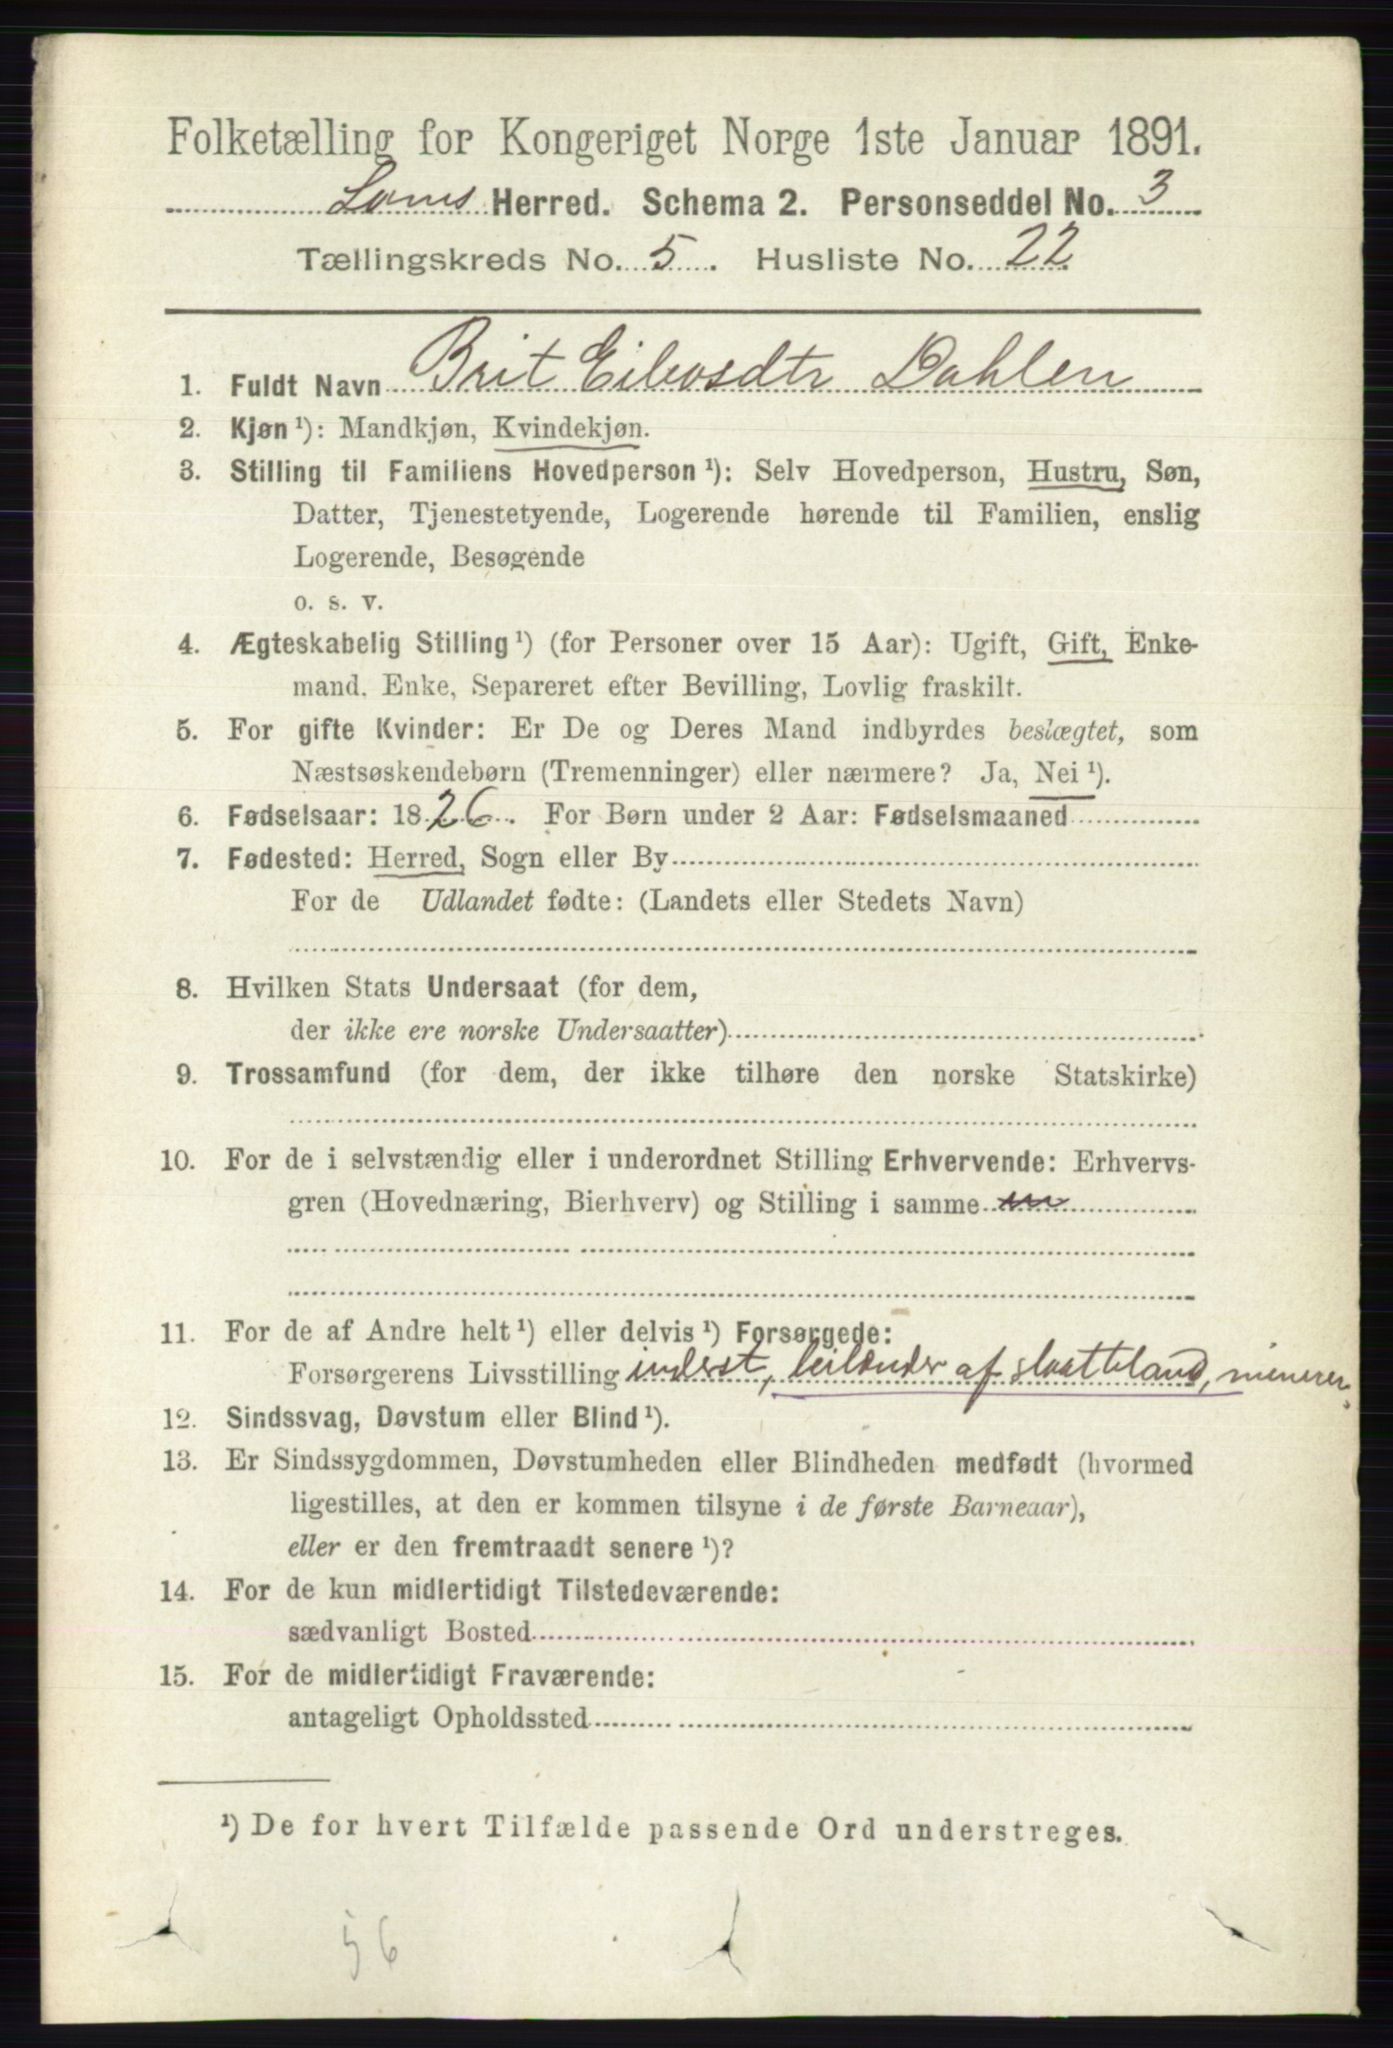 Folketælling for Kongeriget Norge 1ste Januar 1891.
Loms Herred. Schema 2. Personseddel No. 3
Tællingskreds No. 5. Husliste No. 22
1. Fuldt Navn Brit Eilevsdtr Dahlen
2. Kjøn ¹): Mandkjøn, Kvindekjøn.
3. Stilling til Familiens Hovedperson ¹): Selv Hovedperson, Hustru, Søn,
Datter, Tjenestetyende, Logerende hørende til Familien, enslig
Logerende, Besøgende
o. s. v.
4. Ægteskabelig Stilling ¹) (for Personer over 15 Aar): Ugift, Gift, Enke-
mand, Enke, Separeret efter Bevilling, Lovlig fraskilt.
5. For gifte Kvinder: Er De og Deres Mand indbyrdes beslægtet, som
Næstsøskendebørn (Tremenninger) eller nærmere? Ja, Nei ¹).
6. Fødselsaar: 1826. For Børn under 2 Aar: Fødselsmaaned
7. Fødested: Herred, Sogn eller By
For de Udlandet fødte: (Landets eller Stedets Navn)
8. Hvilken Stats Undersaat (for dem,
der ikke ere norske Undersaatter)
9. Trossamfund (for dem, der ikke tilhøre den norske Statskirke)
10. For de i selvstændig eller i underordnet Stilling Erhvervende: Erhvervs-
gren (Hovednæring, Bierhverv) og Stilling i samme
11. For de af Andre helt ¹) eller delvis ¹) Forsørgede:
Forsørgerens Livsstilling inderst, leilænder af slaatteland,
12. Sindssvag, Døvstum eller Blind ¹).
13. Er Sindssygdommen, Døvstumheden eller Blindheden medfødt (hvormed
ligestilles, at den er kommen tilsyne i de første Barneaar),
eller er den fremtraadt senere ¹)?
14. For de kun midlertidigt Tilstedeværende:
sædvanligt Bosted
15. For de midlertidigt Fraværende:
antageligt Opholdssted
¹) De for hvert Tilfælde passende Ord understreges.
56